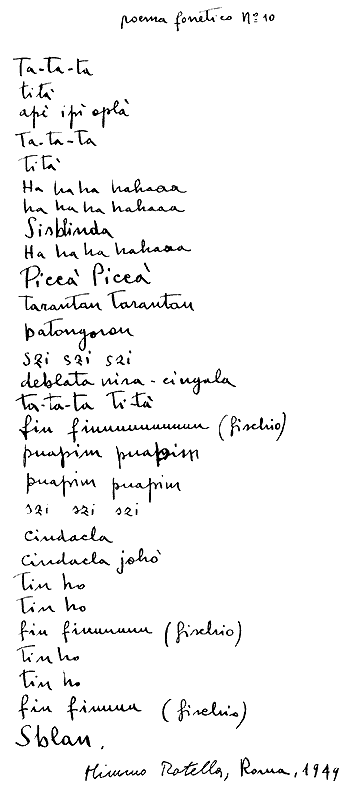 poema fonetico Nº 10
Ta-ta-ta
tità
apì ipì oplà
Ta-ta-ta
Tità
Ha ha ha hahaaa
ha ha ha hahaaa
Sisblinda
Ha ha ha hahaaa
Piccà Piccà
Tarantan Tarantan
patongoron
szi szi szi
deblata nira-cingala
ta-ta-ta Ti-tà
fiu fiuuuuuuuuuu (fischio)
puapim puapim
puapim puapim
szi szi szi
cindacla
cindacla johò
Tin ho
Tin ho
fiu fiuuuuu (fischio)
Tin ho
tin ho
fiu fiuuuu (fischio)
Sblan.
Mimmo Rotella, Roma, 1949